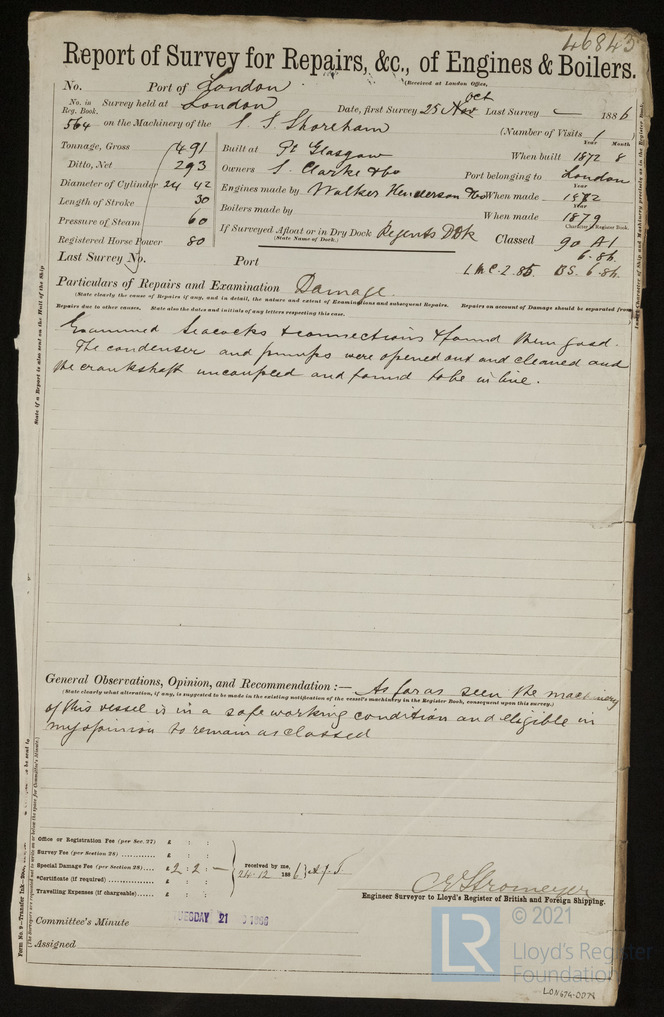 46843
Report of Survey for Repairs, &c., of Engines & Boilers.
(Received at London Office,
No. Port of London
No. in Reg. Book. Survey held at London Date, first Survey 25 Oct Last Survey 1886
564 on the Machinery of the S. S. Shoreham (Number of Visits 1
Tonnage, Gross 491 Built at Pt Glasgow When built Year 1872 Month 8
Ditto, Net 293 Owners S. Clarke & Co Port belonging to London
Diameter of Cylinder 24 42 Engines made by Walker Henderson & Co When made Year 1872
Length of Stroke 30
Pressure of Steam 60 Boilers made by When made Year 1879
Registered Horse Power 80 If Surveyed Afloat or in Dry Dock Regents Dock Classed 90 A1
(State Name of Dock.) Character in Register Book.
6.86
Last Survey No. Port LMC. 2.85 BS. 6.86.
Particulars of Repairs and Examination Damage.
(State clearly the cause of Repairs if any, and in detail, the nature and extent of Examinations and subsequent Repairs. Repairs on account of Damage should be separated from
Repairs due to other causes, State also the dates and initials of any letters respecting this case.
Examined Seacocks & connections & found them good.
The condenser and pumps were opened out and cleaned and
the crankshaft uncoupled and found to be in line.
General Observations, Opinion, and Recommendation :— As far as seen the machinery
(State clearly what alteration, if any, is suggested to be made in the existing notification of the vessel's machinery in the Register Book, consequent upon this survey.)
of this vessel is in a safe working condition and eligible in
my opinion to remain as classed
Office or Registration Fee (per Sec. 27) £ : :
Survey Fee (per Section 28) £ : :
Special Damage Fee (per Section 28) £ 2 . 2 : — received by me, 24.12 1886
*Certificate (if required) £ : :
Travelling Expenses (if chargeable) £ : :
Engineer Surveyor to Lloyd's Register of British and Foreign Shipping.
Committee's Minute TUESDAY 21
Assigned
State if a Report is also sent on the Hull of the Ship
Form No. 9
LR
© 2021
Lloyd's Register
Foundation
LON674-0078